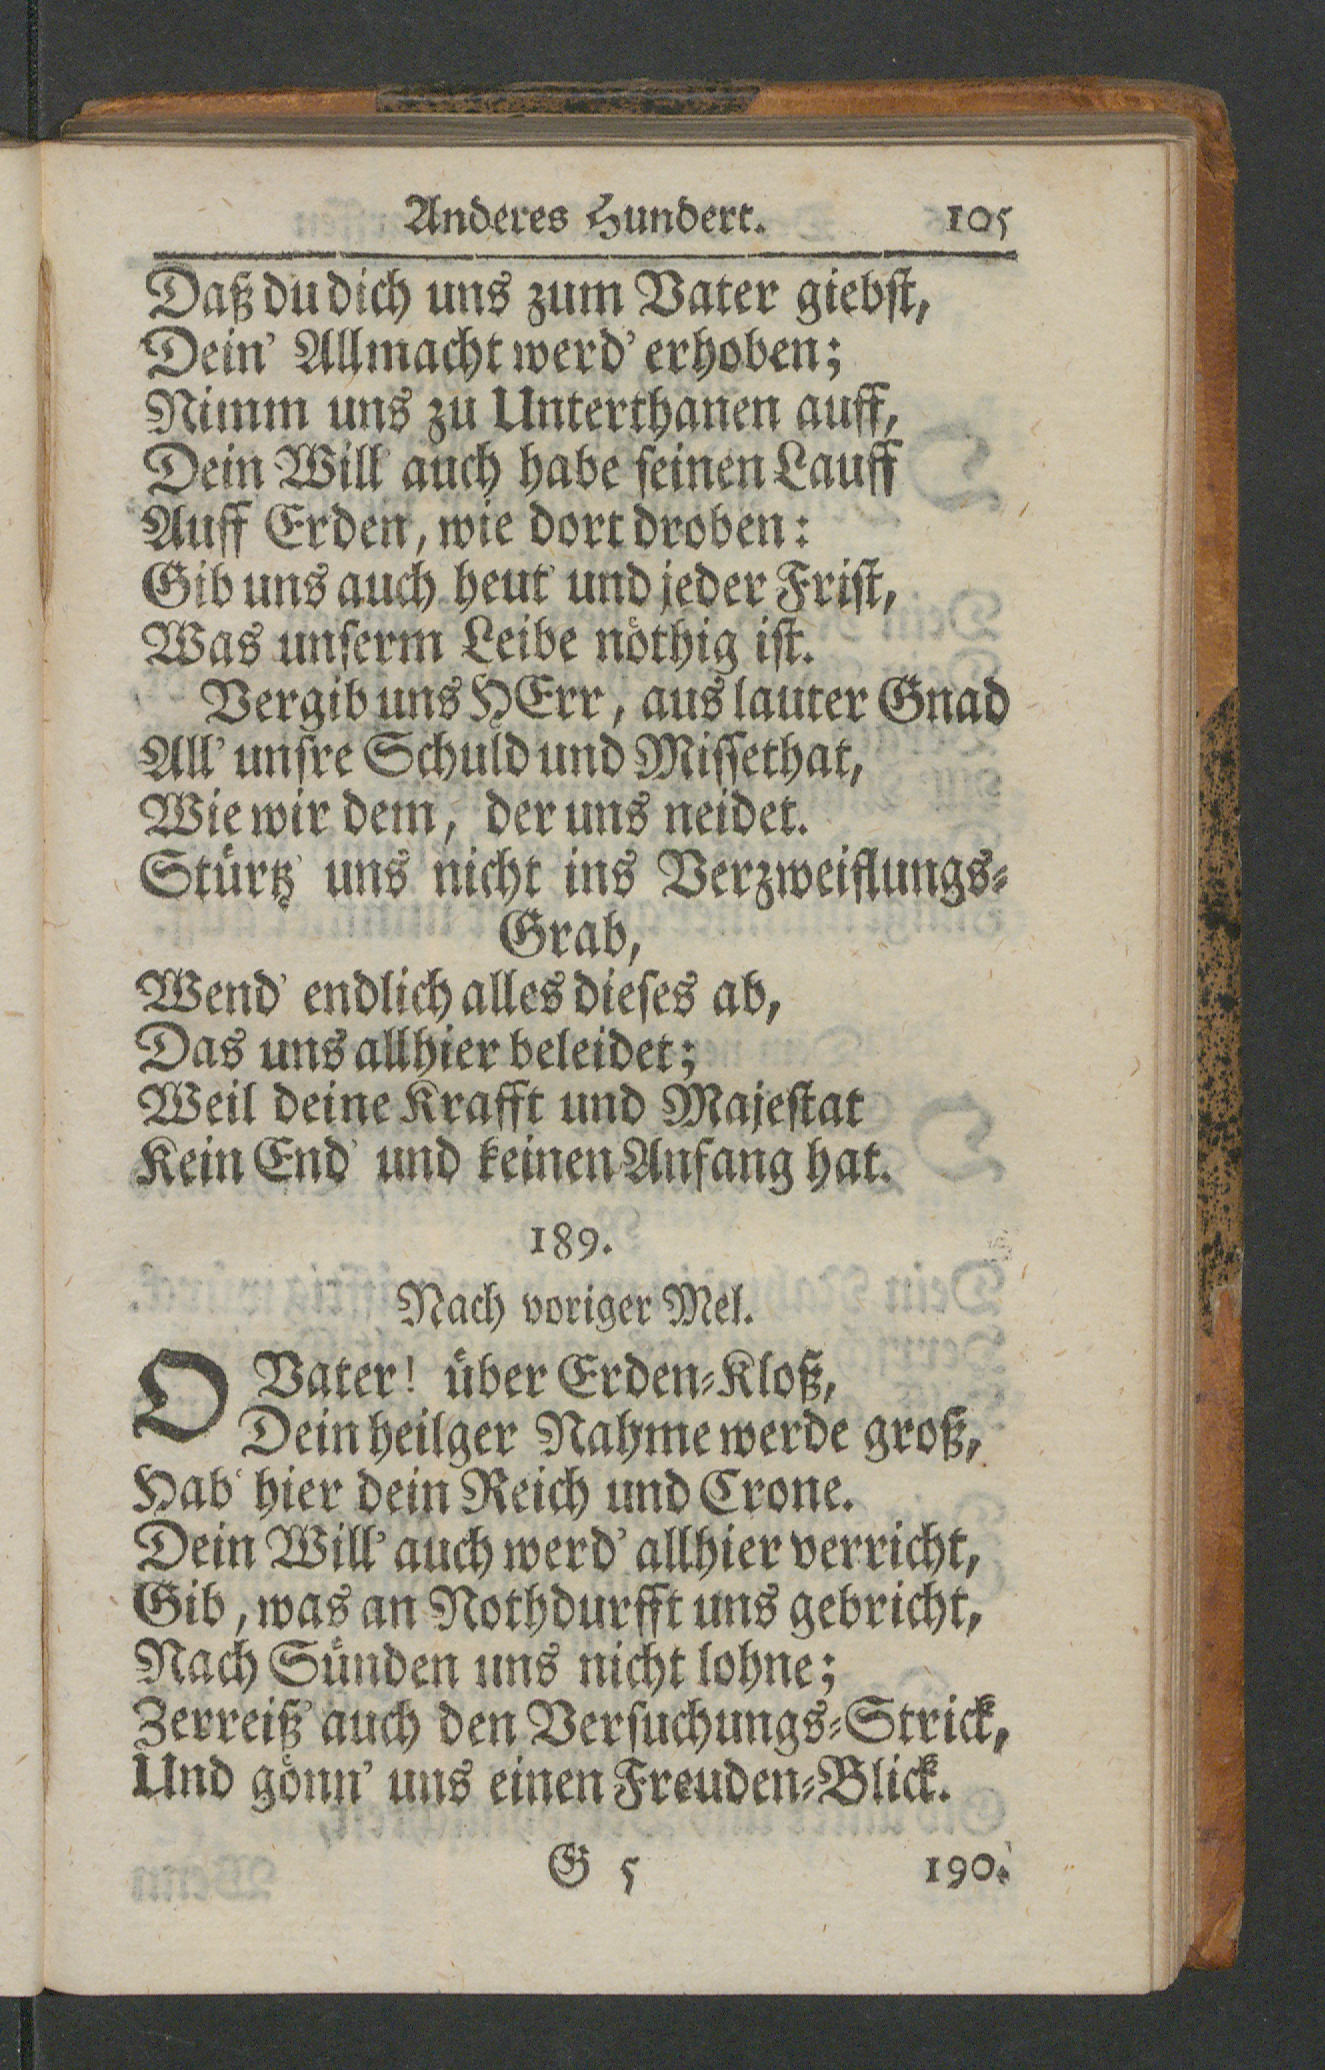 Anderes Hundert. 105
Daß du dich uns zum Vater giebst,
Dein' Allmacht werd' erhoben;
Nimm uns zu Unterthanen auff,
Dein Will' auch habe seinen Lauff
Auff Erden, wie dort droben:
Gib uns auch heut' und jeder Frist,
Was unserm Leibe nöthig ist.
Vergib uns HErr, aus lauter Gnad
All' unsre Schuld und Missethat,
Wie wir dem, der uns neidet.
Stürtz' uns nicht ins Verzweiflungs-
Grab,
Wend' endlich alles dieses ab,
Das uns allhier beleidet;
Weil deine Krafft und Majestat
Kein End' und keinen Anfang hat.
189.
Nach voriger Mel.
O Vater! über Erden-Kloß,
Dein heilger Nahme werde groß,
Hab' hier dein Reich und Crone.
Dein Will' auch werd' allhier verricht,
Gib, was an Nothdurfft uns gebricht,
Nach Sünden uns nicht lohne;
Zerreiß' auch den Versuchungs-Strick,
Und gönn' uns einen Freuden-Blick.
G 5 190.